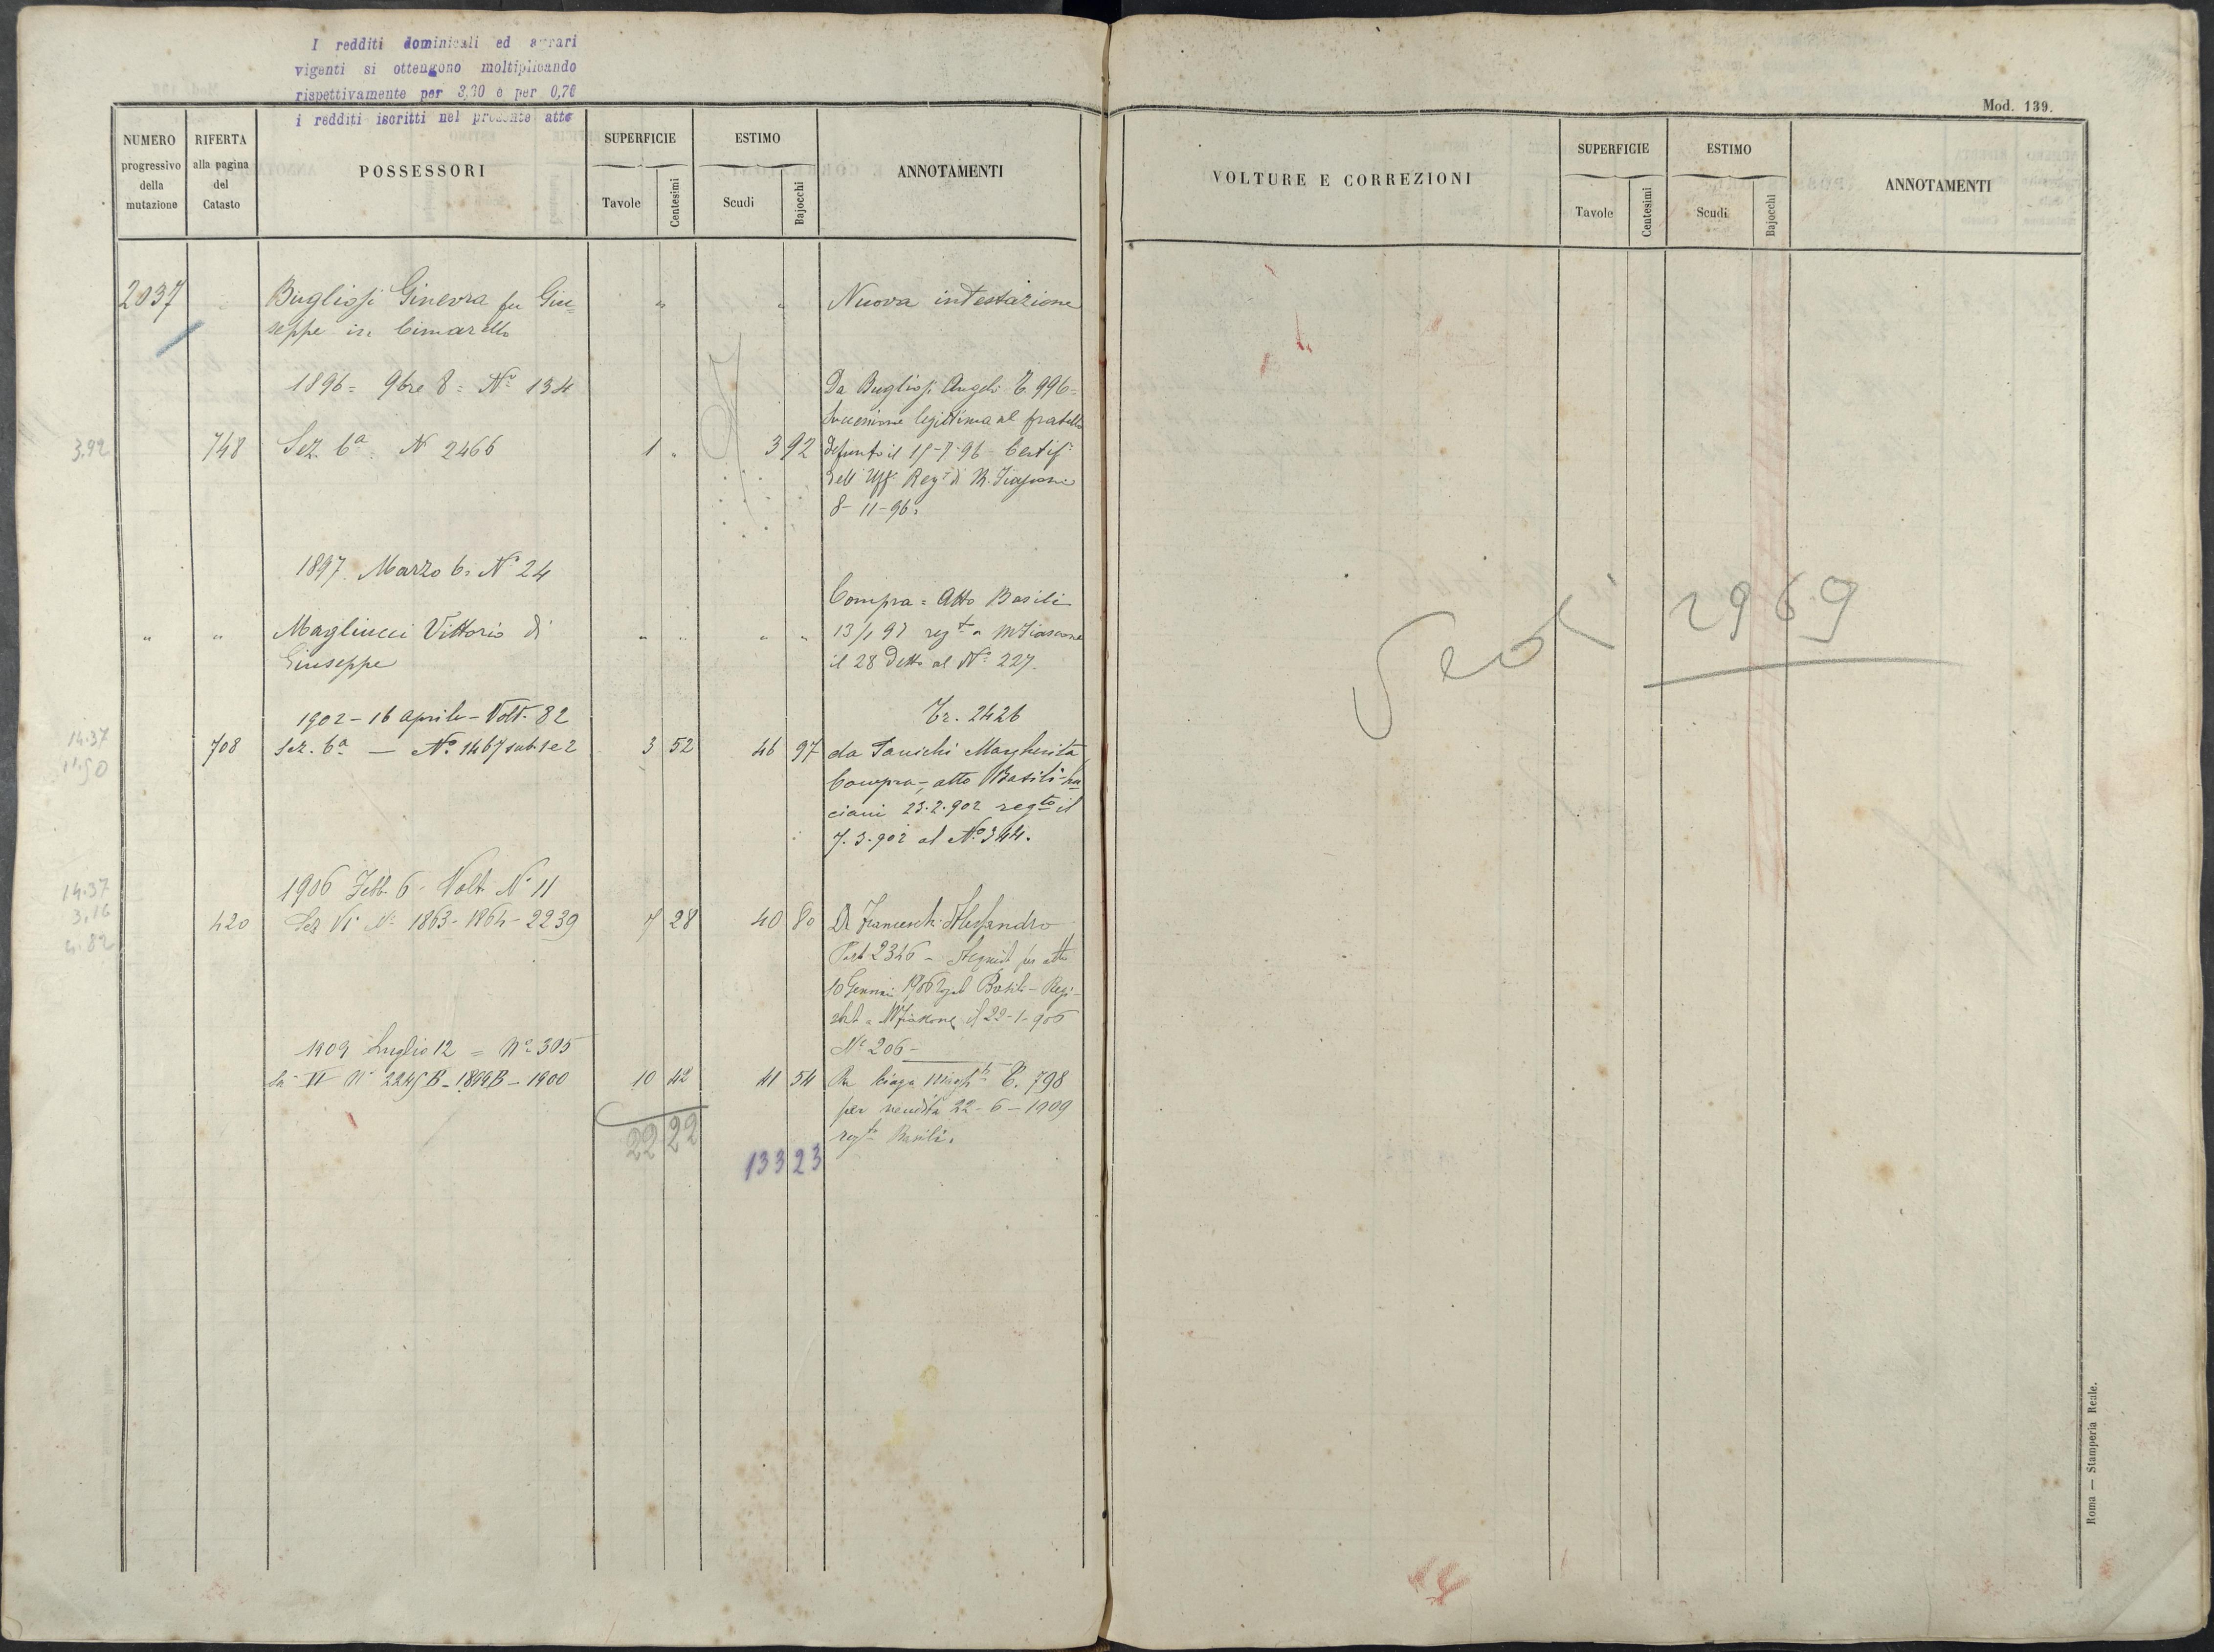 I redditi dominicali ed agrari
vigenti si ottengono moltiplicando
rispettivamente per 3,30 e per 0,70
i redditi iscritti nel presente atto
NUMERO
progressivo
della
mutazione
RIFERTA
alla pagina
del
Catasto
POSSESSORI
SUPERFICIE
Tavole
Centesimi
ESTIMO
Scudi
Bajocchi
ANNOTAMENTI
2037 Bugliosi Ginevra fu Giu= " " Nuova intestazione
seppe in Cimarello
1896 = 9bre 8 = N° 134 Da Bugliosi Angelo T. 996=
Successione legittima al fratello
3.92 748 Sez. 6a. N 2466 1 " 3 92 defunto il 11-7-96 Certif.
dell Uff. Reg° di M. Fiascone
8-11-96.
1897. Marzo 6. N° 24
Compra = Atto Basili
" " Magliucci Vittorio di " " " " 13/1 97 regto a MFiascone
Giuseppe il 28 detto al N° 227.
1902 - 16 aprile - Volt. 82 Tr. 2426
14.37 708 Sez. 6a — N° 1467 sub 1 e 2 3 52 46 97 da Margherita
11.50
Compra - atto Basili-
ciani 23.2.902 regto il
7.3.902 al N° 344.
1906 Febb. 6 - Volt. N° 11
14.37
3.16 420 Sez VIa N° 1863-1864-2239 7 28 40 80 Da Franceschi Alessandro
4.82
Part 2346 - Acquist per atto
10 Gennai 1906 Basili - Regi-
strt a MFiascone il 29-1-906
N° 206 -
1909 Luglio 12 = N° 305
Sez VI N° 2245 B - 1899 B - 1900 10 42 41 54 T. 798
per vendita 22-6-1909
regto Basili.
22 22
133 23
Mod. 139.
VOLTURE E CORREZIONI
SUPERFICIE
Tavole
Centesimi
ESTIMO
Scudi
Bajocchi
ANNOTAMENTI
2969
Roma — Stamperia Reale.